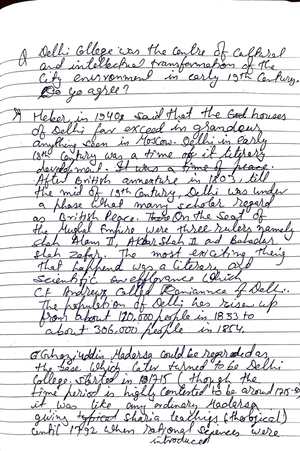 Q Delhi College was the centre of Cultural
and intellectual transformation of the
City environment in early 19th Century.
Do yo agree?
Heber, in 1940s said that the God houses
of Delhi far exceed in grandeur
anything seen in Moscow. Delhi in early
19th Century was a time of it literary
development. It was a time of peace.
After British annexture in 1803 till
the mid of 19th Century, Delhi was under
a phase what many scholar regard
as British Peace. On the Seat of
the Mughal Empire were three rulers namely
Shah Alam II, Akbar Shah II and Bahadar
Shah Zafar. The most exicating thing
that happend was a literary and
Scientific an efflorance which
C.F Andreys called Raniannce of Delhi.
The population of Delhi has risen up
from about 120,000 people in 1833 to
about 306,000 people in 1854.
Ghaziuddin Madersa could be regareded as
the base which later turned to be Delhi
College, started in (though the
time period is highly contented to be around
it was like any ordinary Madersa
giving Sharia teachigs (theological)
until 1792 when rational sciences were
introduced